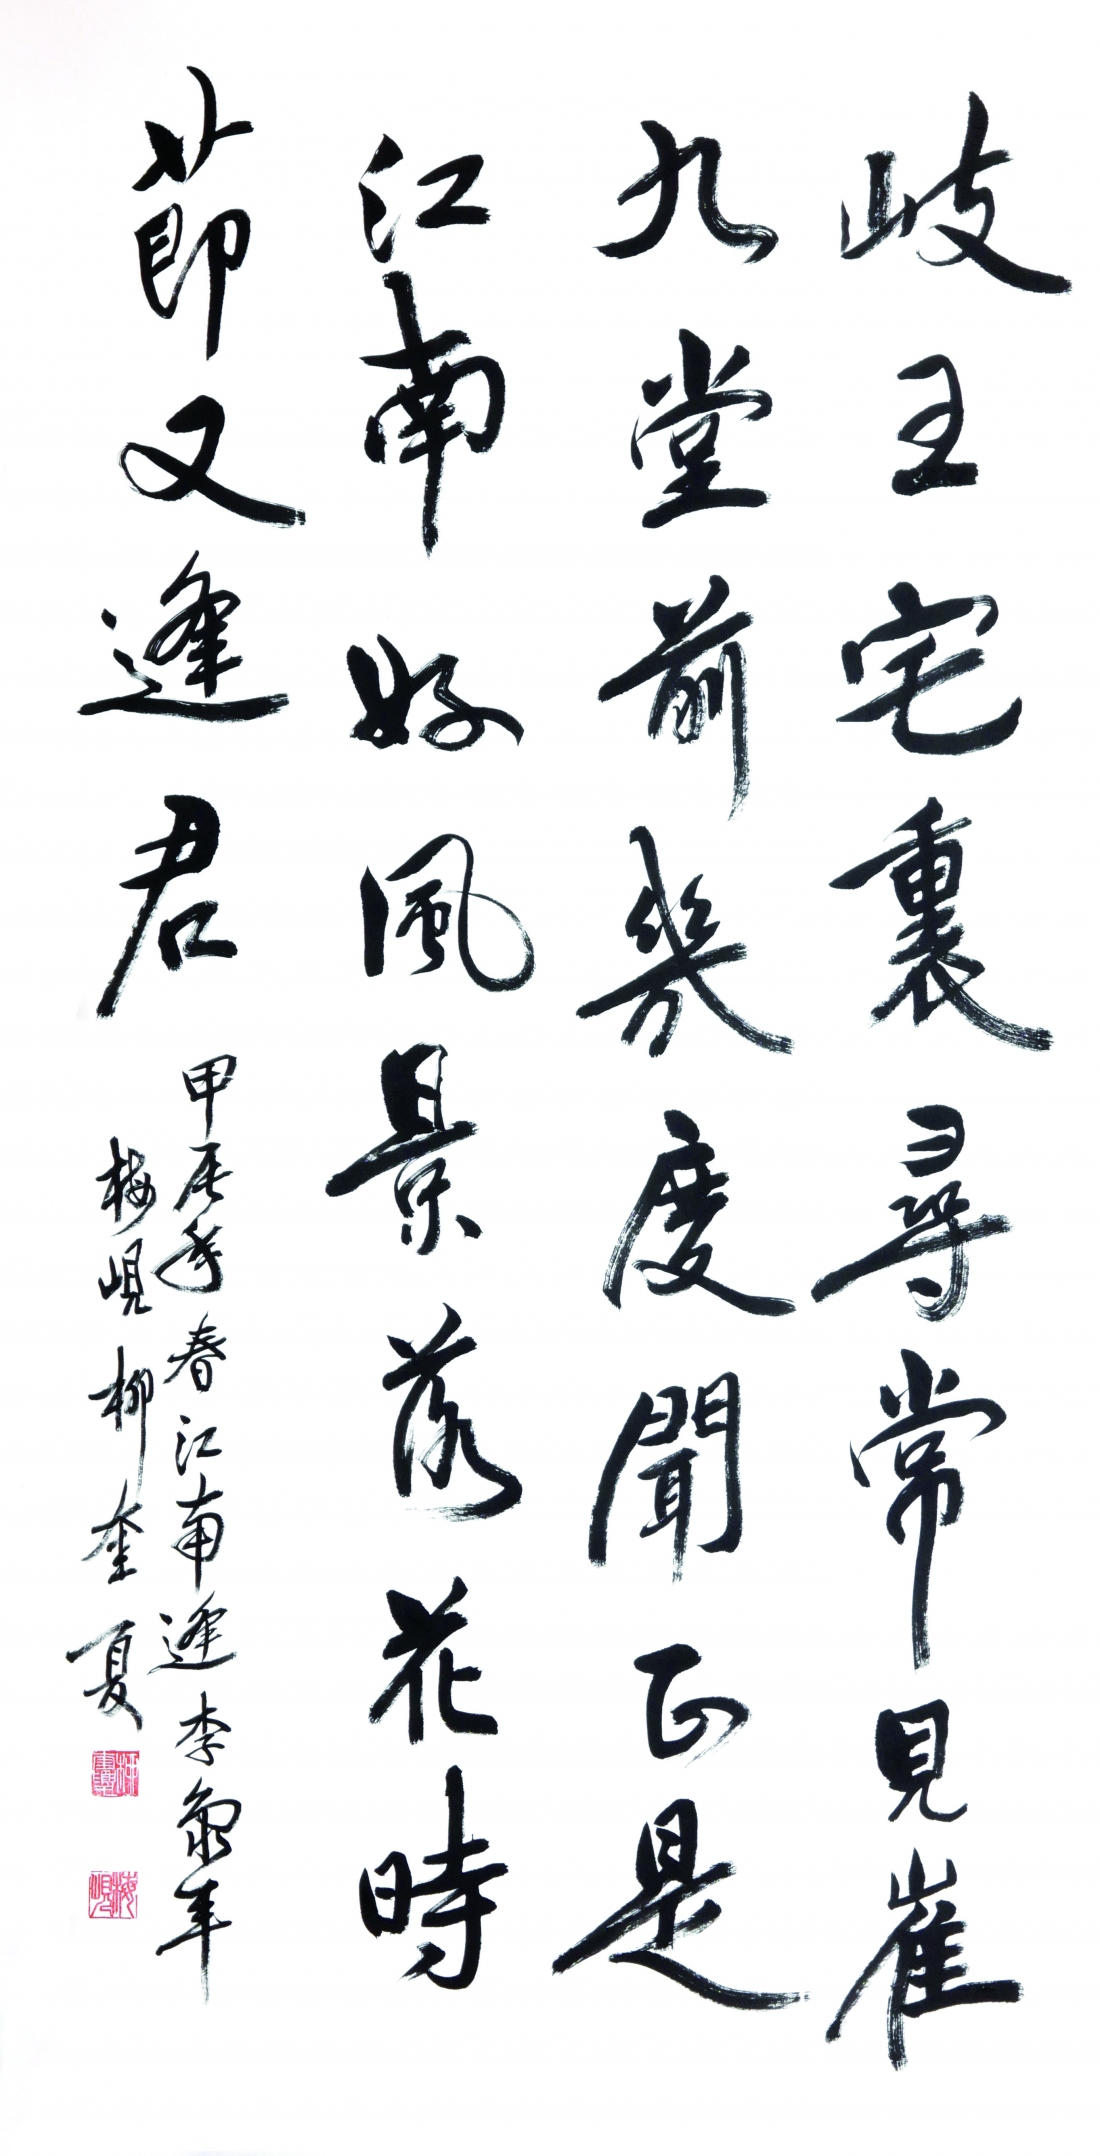 岐王宅裏尋常見崔
九堂前幾度聞正是
江南好風景落花時
節又逢君
甲辰年春江南逢李龜年
梅峴柳奎夏